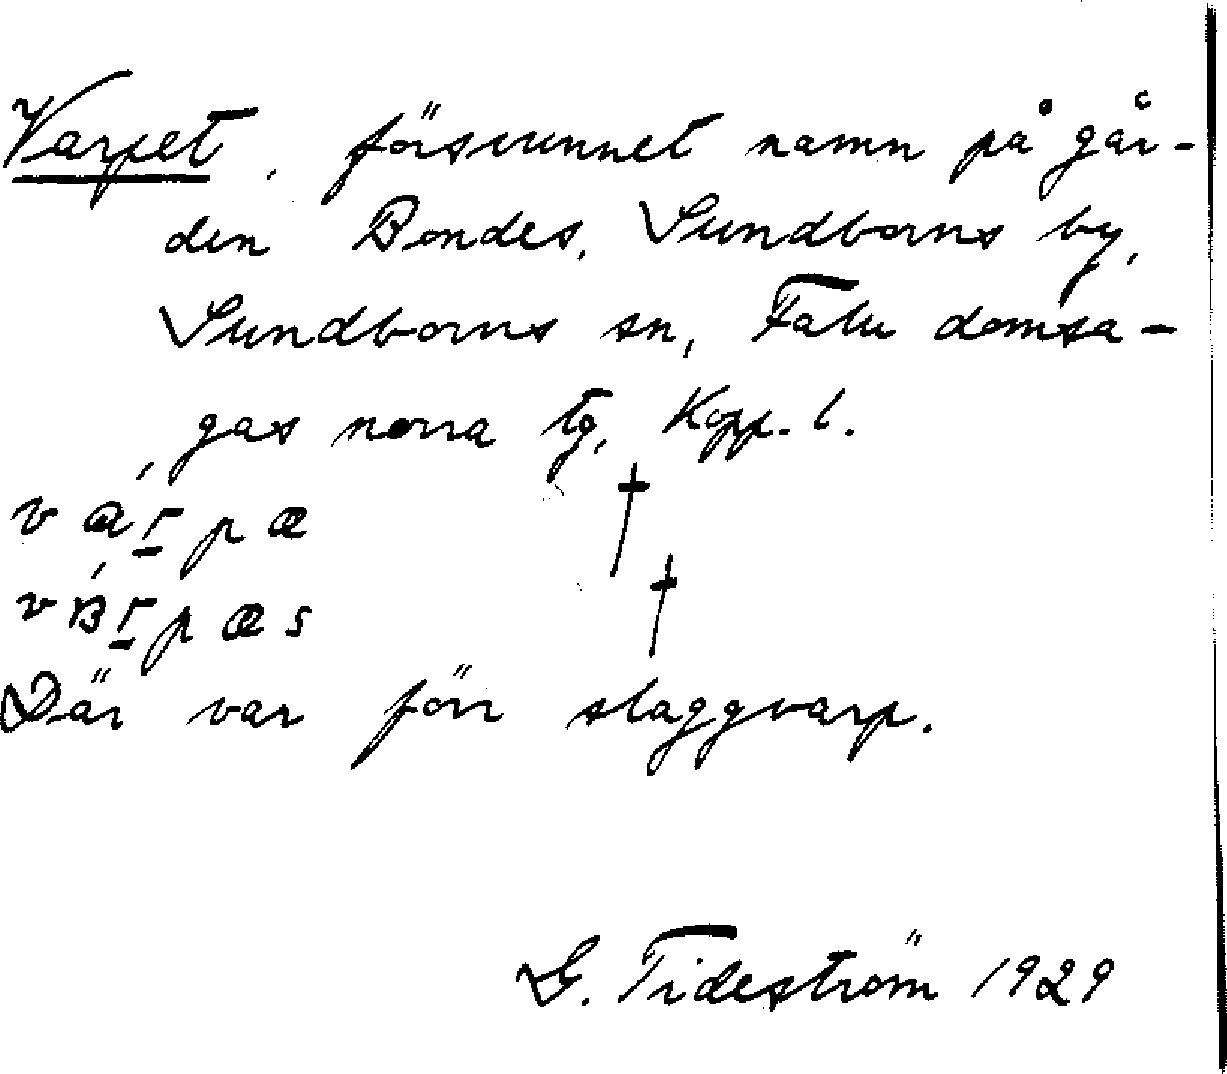 Varpet, försvunnet namn på går-
den Bondes, Sundborns by,
Sundborns sn, Falu domsa-
gas norra tg, Kopp. l.
†
†
Där var förr slaggvarp.
G. Tideström 1929